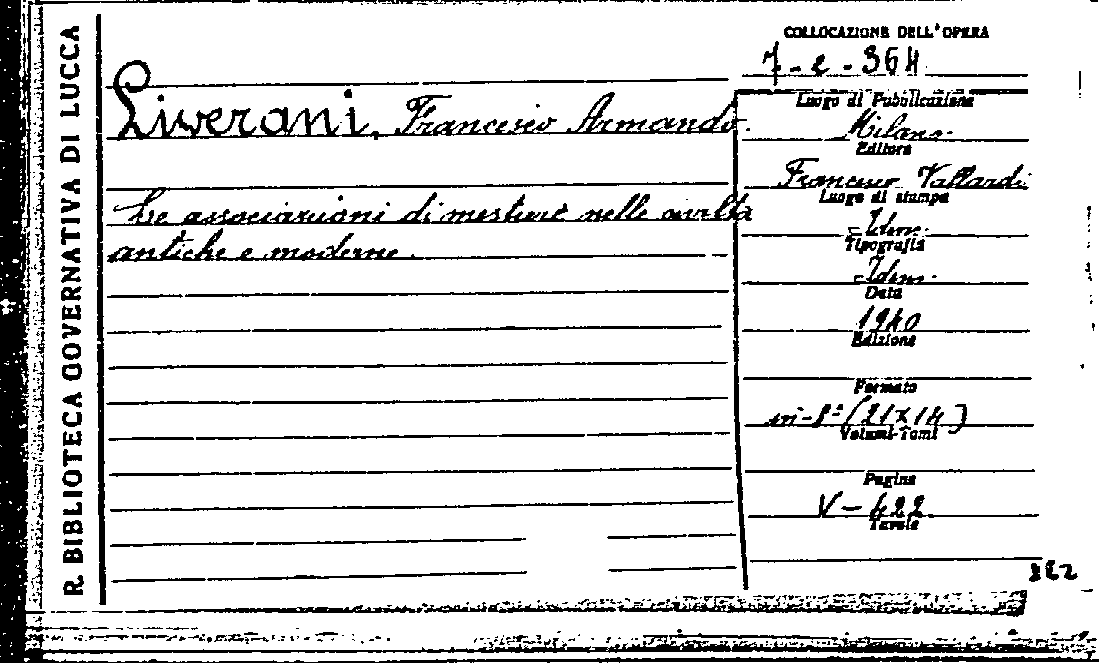 R. BIBLIOTECA GOVERNATIVA DI LUCCA
COLLOCAZIONE DELL'OPERA
7-e-364
Liverani, Francesco Armando.
Le associazioni di mestiere nelle civiltà
antiche e moderne.
Luogo di Pubblicazione
Milano.
Editore
Francesco Vallardi
Luogo di stampa
Idem.
Tipografia
Idem.
Data
1940
Edizione
Formato
in-8º (21x14)
Volumi-Tomi
Pagine
V-422
Tavole